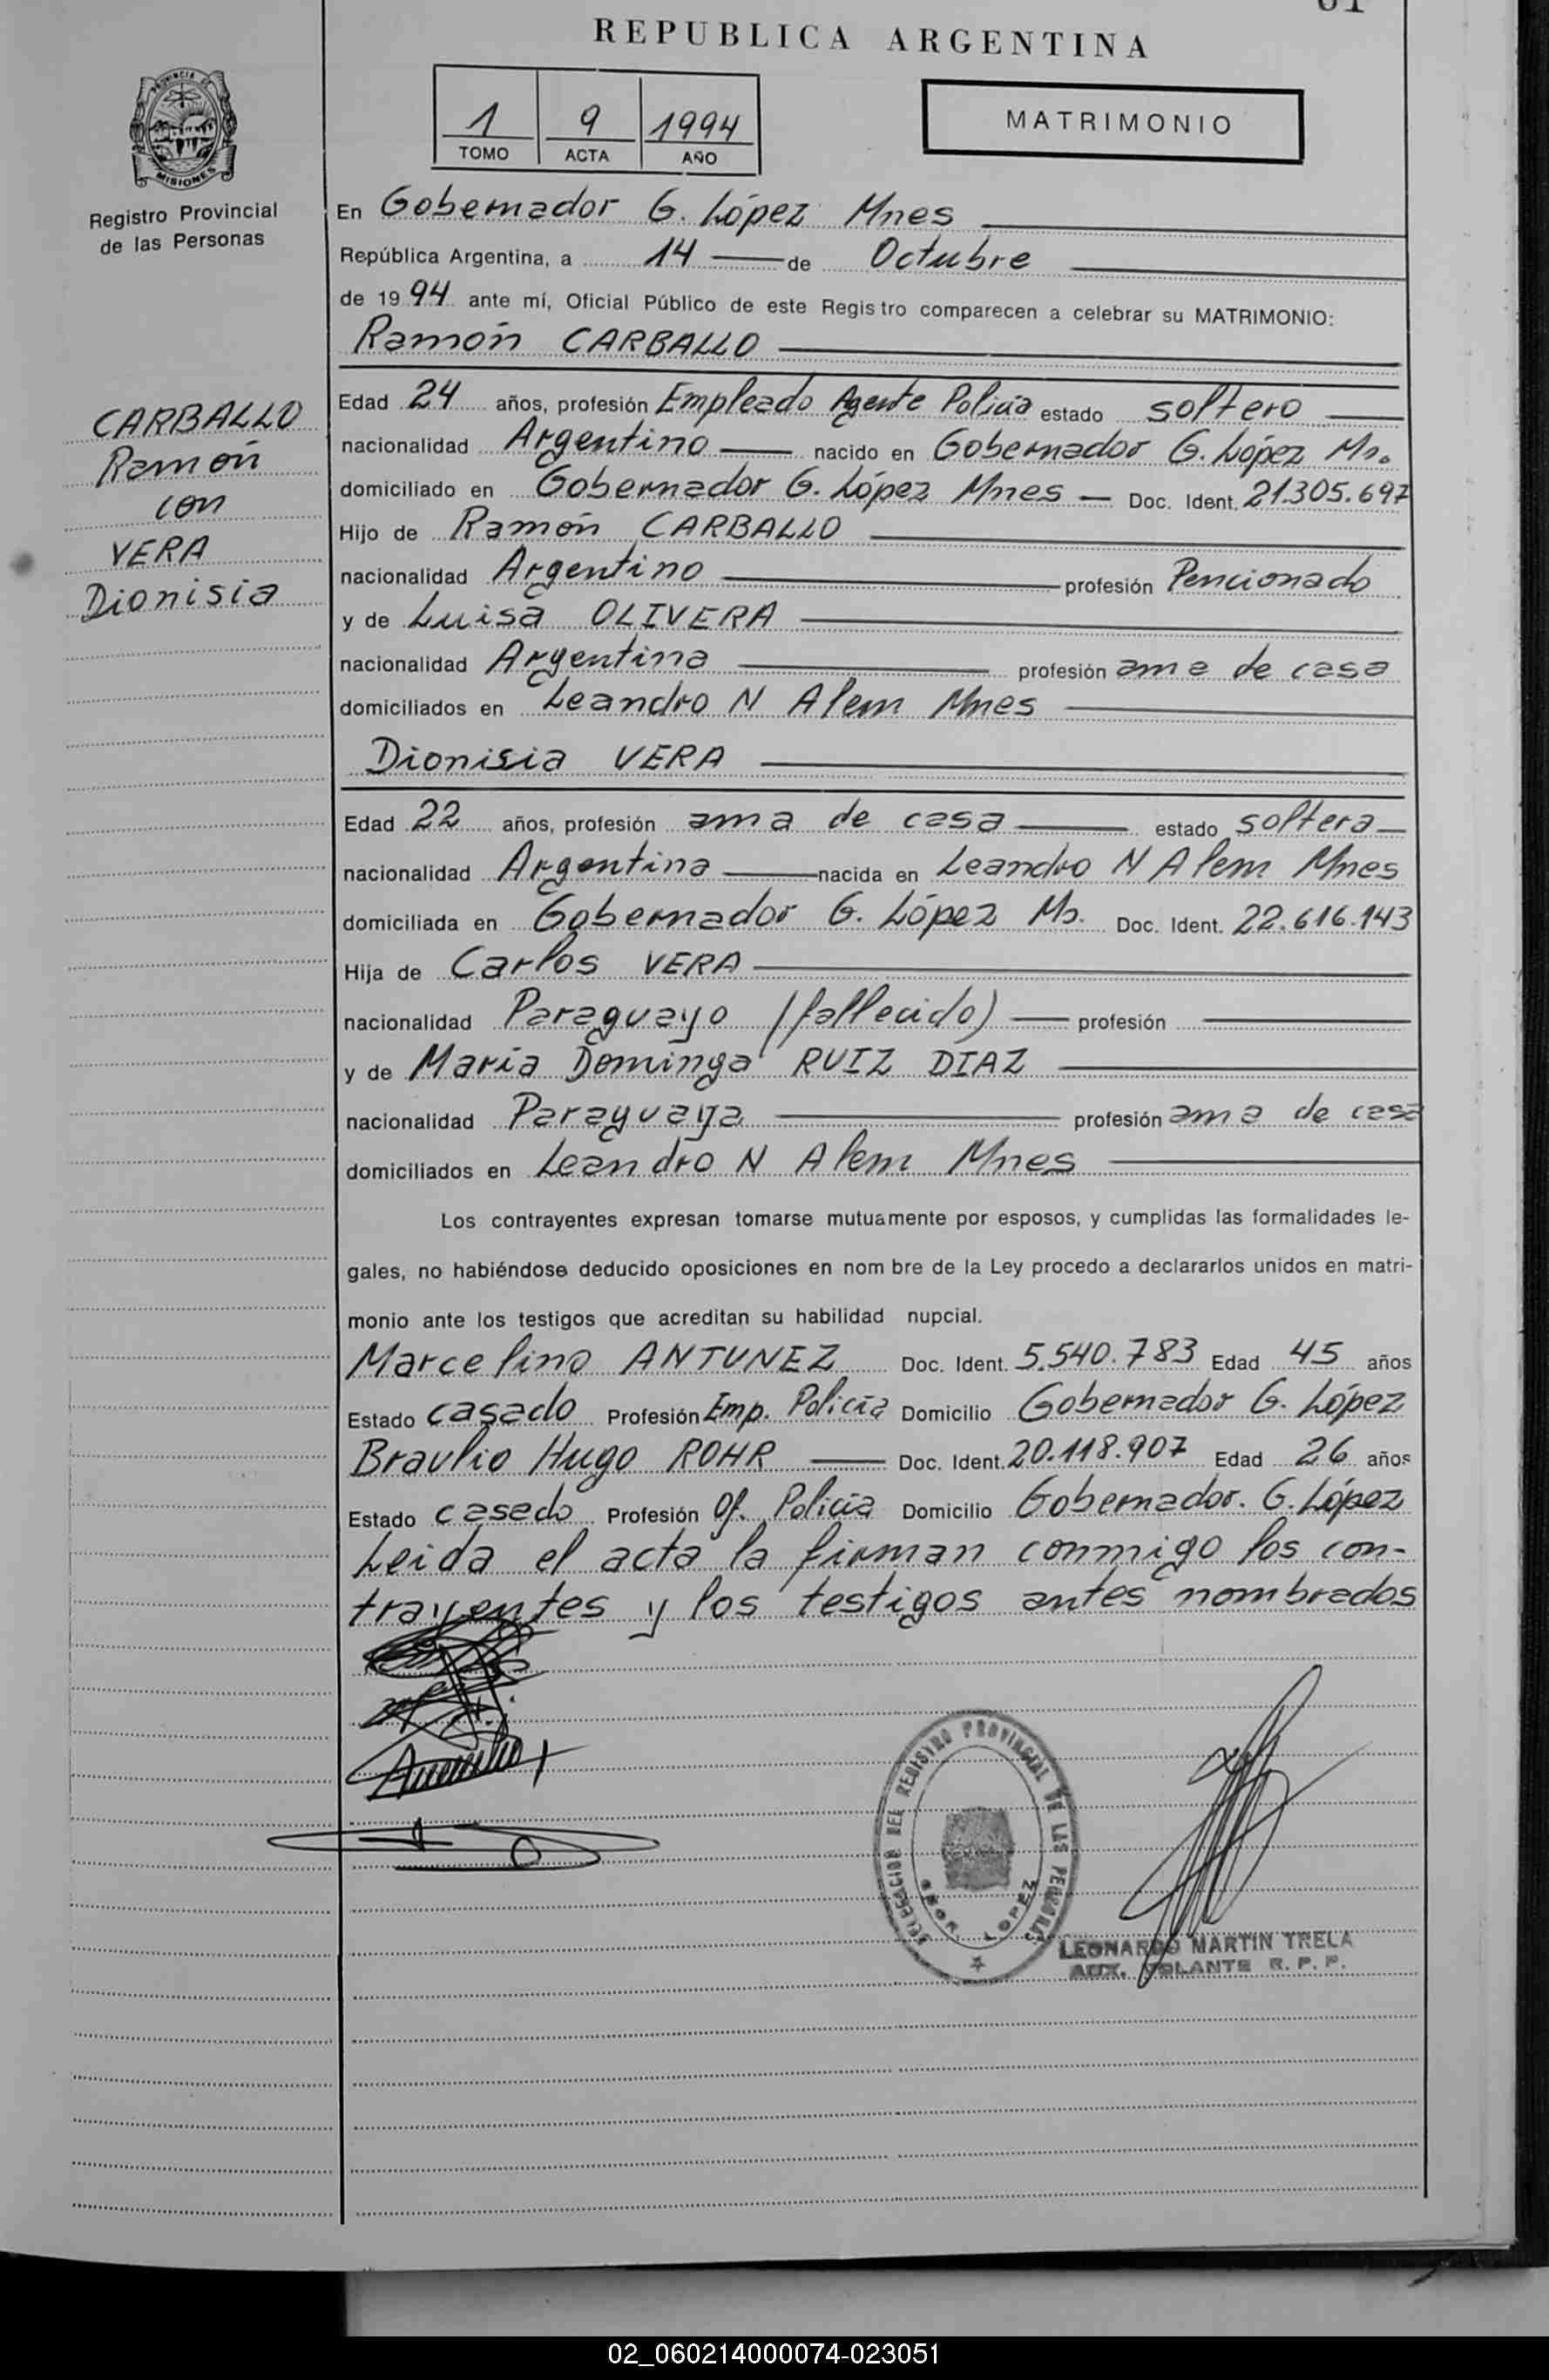 REPUBLICA ARGENTINA
PROVINCIA DE
MISIONES
Registro Provincial
de las Personas
1 9 1994
TOMO ACTA AÑO
MATRIMONIO
En Gobernador G. López Mnes
República Argentina, a 14 de Octubre
de 1994 ante mí, Oficial Público de este Registro comparecen a celebrar su MATRIMONIO:
Ramón CARBALLO
CARBALLO
Ramón
con
VERA
Dionisia
Edad 24 años, profesión Empleado Agente Policía estado soltero
nacionalidad Argentino nacido en Gobernador G. López Ms.
domiciliado en Gobernador G. López Mnes Doc. Ident. 21.305.697
Hijo de Ramón CARBALLO
nacionalidad Argentino profesión Pencionado
y de Luisa OLIVERA
nacionalidad Argentina profesión ama de casa
domiciliados en Leandro N Alem Mnes
Dionisia VERA
Edad 22 años, profesión ama de casa estado soltera
nacionalidad Argentina nacida en Leandro N Alem Mnes
domiciliada en Gobernador G. López Ms. Doc. Ident. 22.616.143
Hija de Carlos VERA
nacionalidad Paraguayo (fallecido) profesión
y de María Dominga RUIZ DIAZ
nacionalidad Paraguaya profesión ama de casa
domiciliados en Leandro N Alem Mnes
Los contrayentes expresan tomarse mutuamente por esposos, y cumplidas las formalidades le-
gales, no habiéndose deducido oposiciones en nom bre de la Ley procedo a declararlos unidos en matri-
monio ante los testigos que acreditan su habilidad nupcial.
Marcelino ANTUNEZ Doc. Ident. 5.540.783 Edad 45 años
Estado casado Profesión Emp. Policía Domicilio Gobernador G. López
Braulio Hugo ROHR Doc. Ident. 20.118.907 Edad 26 años
Estado casado Profesión Of. Policía Domicilio Gobernador. G. López
Leida el acta la firman conmigo los con-
trayentes y los testigos antes nombrados
DELEGACION DEL REGISTRO PROVINCIAL DE LAS PERSONAS
GBOR. LOPEZ
LEONARDO MARTIN TRELA
AUX. VOLANTE R. P. P.
02_060214000074-023051